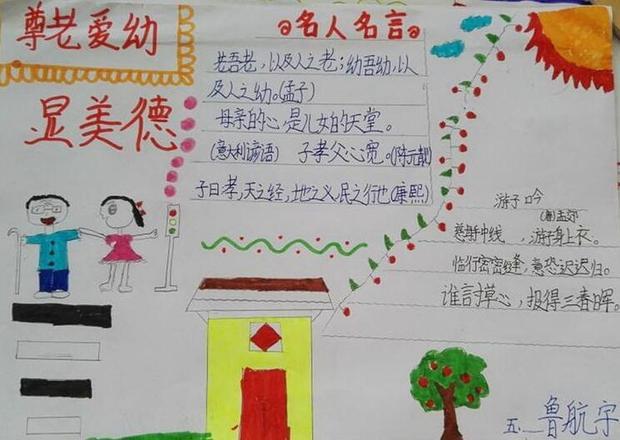 尊老爱幼
显美德
名人名言
老吾老，以及人之老；幼吾幼，以
及人之幼。(孟子)
母亲的心是儿女的天堂。
(意大利谚语) 子孝父心宽。(陈元靓)
子曰孝，天之经，地之义，民之行也(康熙)
游子吟
(唐)孟郊
慈母手中线，游子身上衣。
临行密密缝，意恐迟迟归。
谁言寸草心，报得三春晖。
五.一 鲁航宇